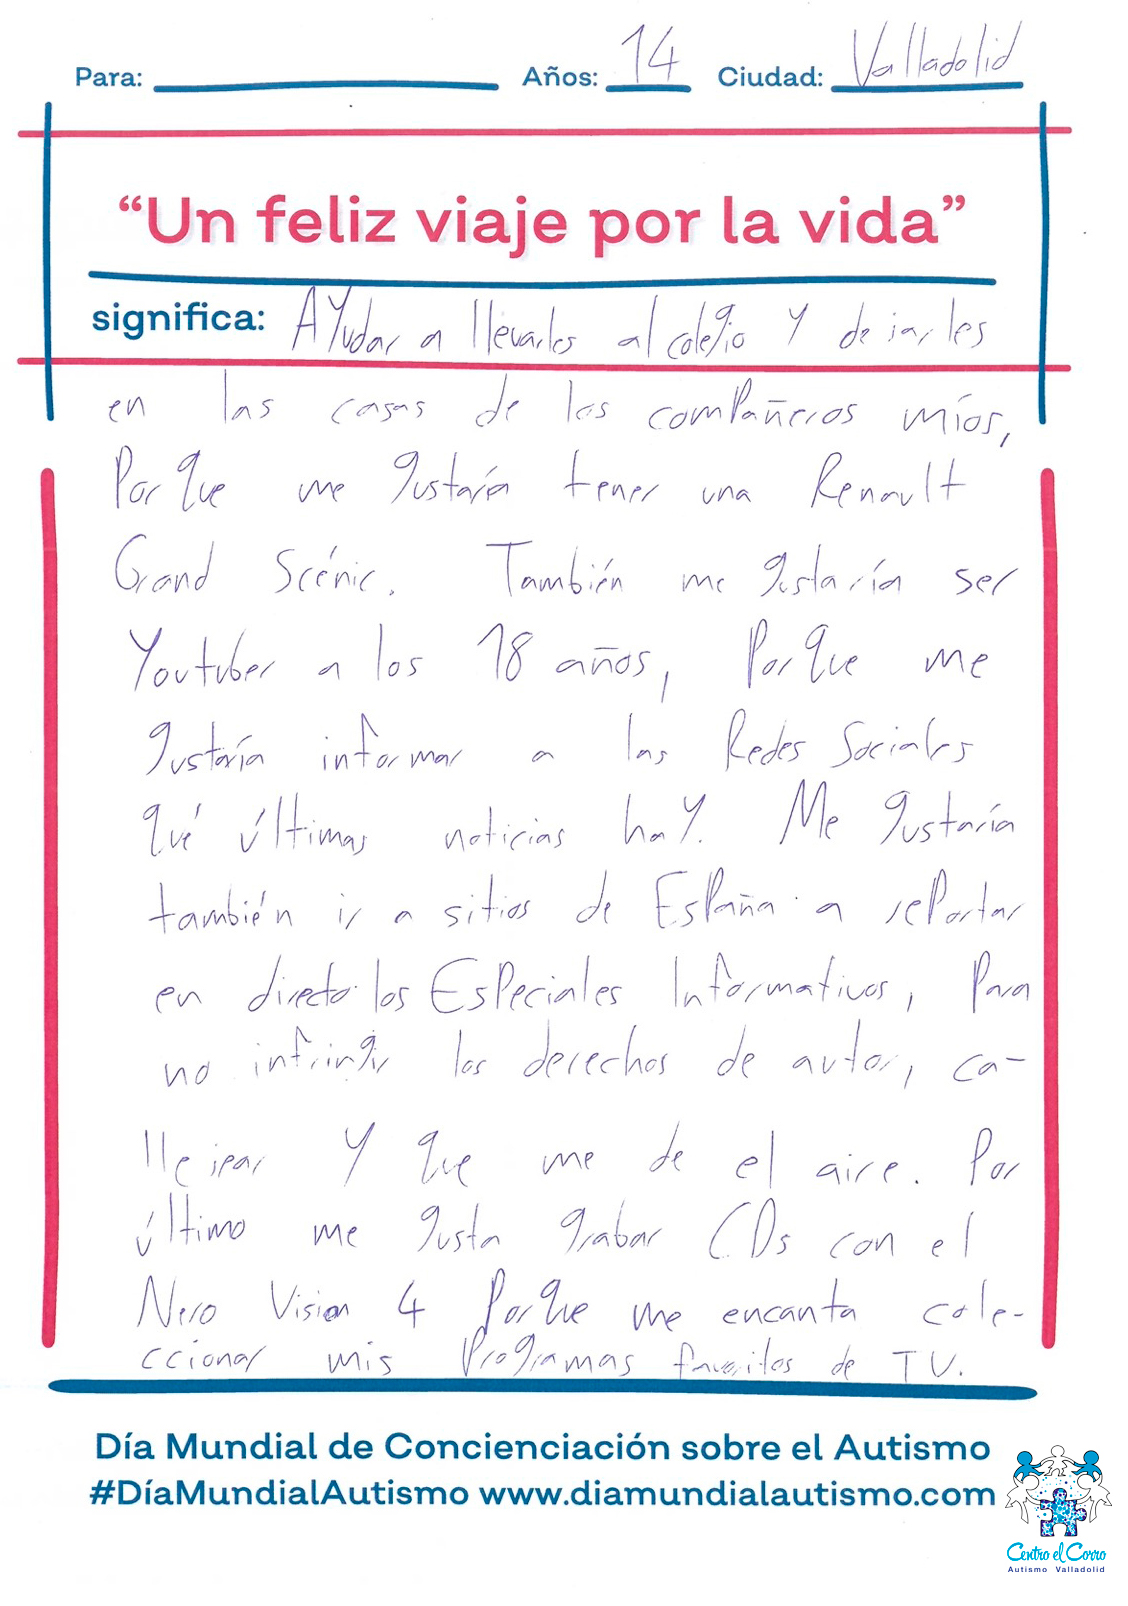 Para: Años: 14 Ciudad: Valladolid
“Un feliz viaje por la vida”
significa: Ayudar a llevarles al colegio y dejarles
en las casas de los compañeros míos,
Porque me gustaría tener una Renault
Grand Scénic. También me gustaría ser
Youtuber a los 18 años, Porque me
gustaría informar a las Redes Sociales
qué últimas noticias hay. Me gustaría
también ir a sitios de España a rePortar
en directo los EsPeciales Informativos, Para
no infringir los derechos de autor, ca-
llejear y que me de el aire. Por
último me gusta grabar CDs con el
Nero Vision 4 Porque me encanta cole-
ccionar mis Programas favoritos de TV.
Día Mundial de Concienciación sobre el Autismo
#DíaMundialAutismo www.diamundialautismo.com
Centro el Corro
Autismo Valladolid